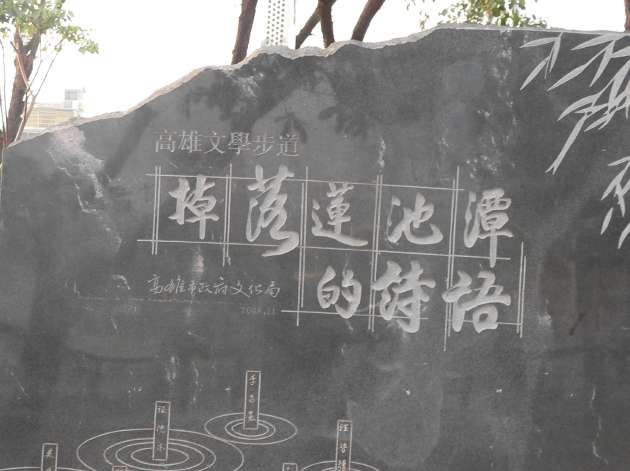 高雄文學步道
掉落蓮池潭
的詩語
高雄市政府文化局